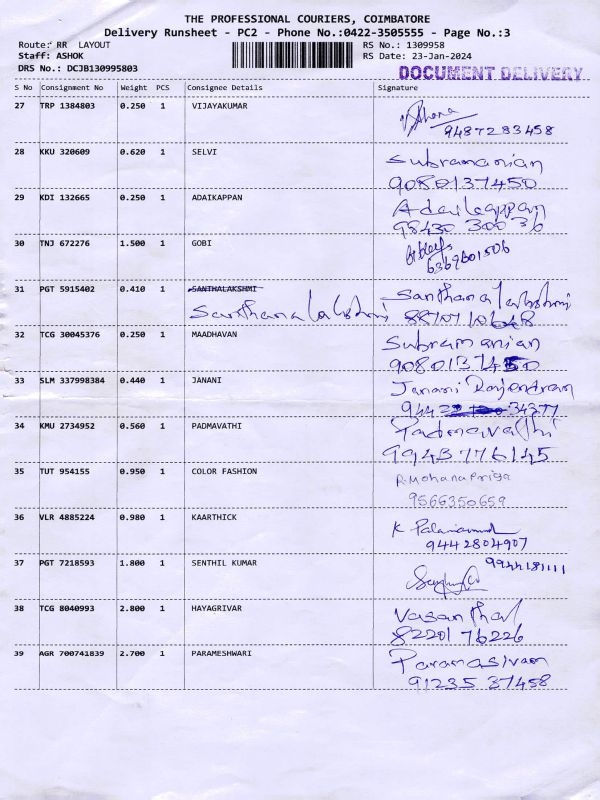 THE PROFESSIONAL COURIERS, COIMBATORE
Delivery Runsheet - PC2 - Phone No.:0422-3505555 - Page No.:3
Route: RR LAYOUT RS No.: 1309958
Staff: ASHOK RS Date: 23-Jan-2024
DRS No.: DCJB130995803 DOCUMENT DELIVERY
S No Consignment No Weight PCS Consignee Details Signature
27 TRP 1384803 0.250 1 VIJAYAKUMAR
9487283458
28 KKU 320609 0.620 1 SELVI Subramanian
9080137450
29 KDI 132665 0.250 1 ADAIKAPPAN Adaikappan
98430 30036
30 TNJ 672276 1.500 1 GOBI
6369601506
31 PGT 5915402 0.410 1 SANTHALAKSHMI Santhanalakshmi
Santhanalakshmi
32 TCG 30045376 0.250 1 MAADHAVAN Subramanian
9080137450
33 SLM 337998384 0.440 1 JANANI Janani Rajendran
34 KMU 2734952 0.560 1 PADMAVATHI Padmavathi
9943776145
35 TUT 954155 0.950 1 COLOR FASHION R.MohanaPriya
9566350659
36 VLR 4885224 0.980 1 KAARTHICK K
9442804907
37 PGT 7218593 1.800 1 SENTHIL KUMAR 9944181111
38 TCG 8040993 2.800 1 HAYAGRIVAR
82201 76226
39 AGR 700741839 2.700 1 PARAMESHWARI Paramasivam
91235 37458